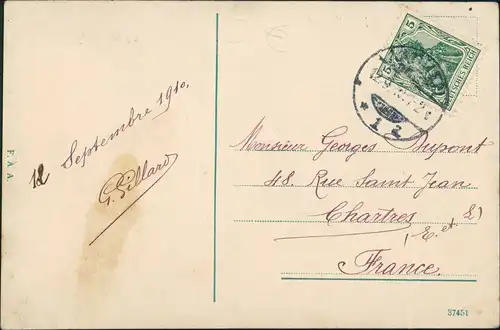 12 Septembre 1910.
G. Gillard
F. A. A.
5
DEUTSCHES REICH
* 1 z
Monsieur Georges Dupont
48. Rue Saint Jean
Chartres
(E. et L)
France.
37451